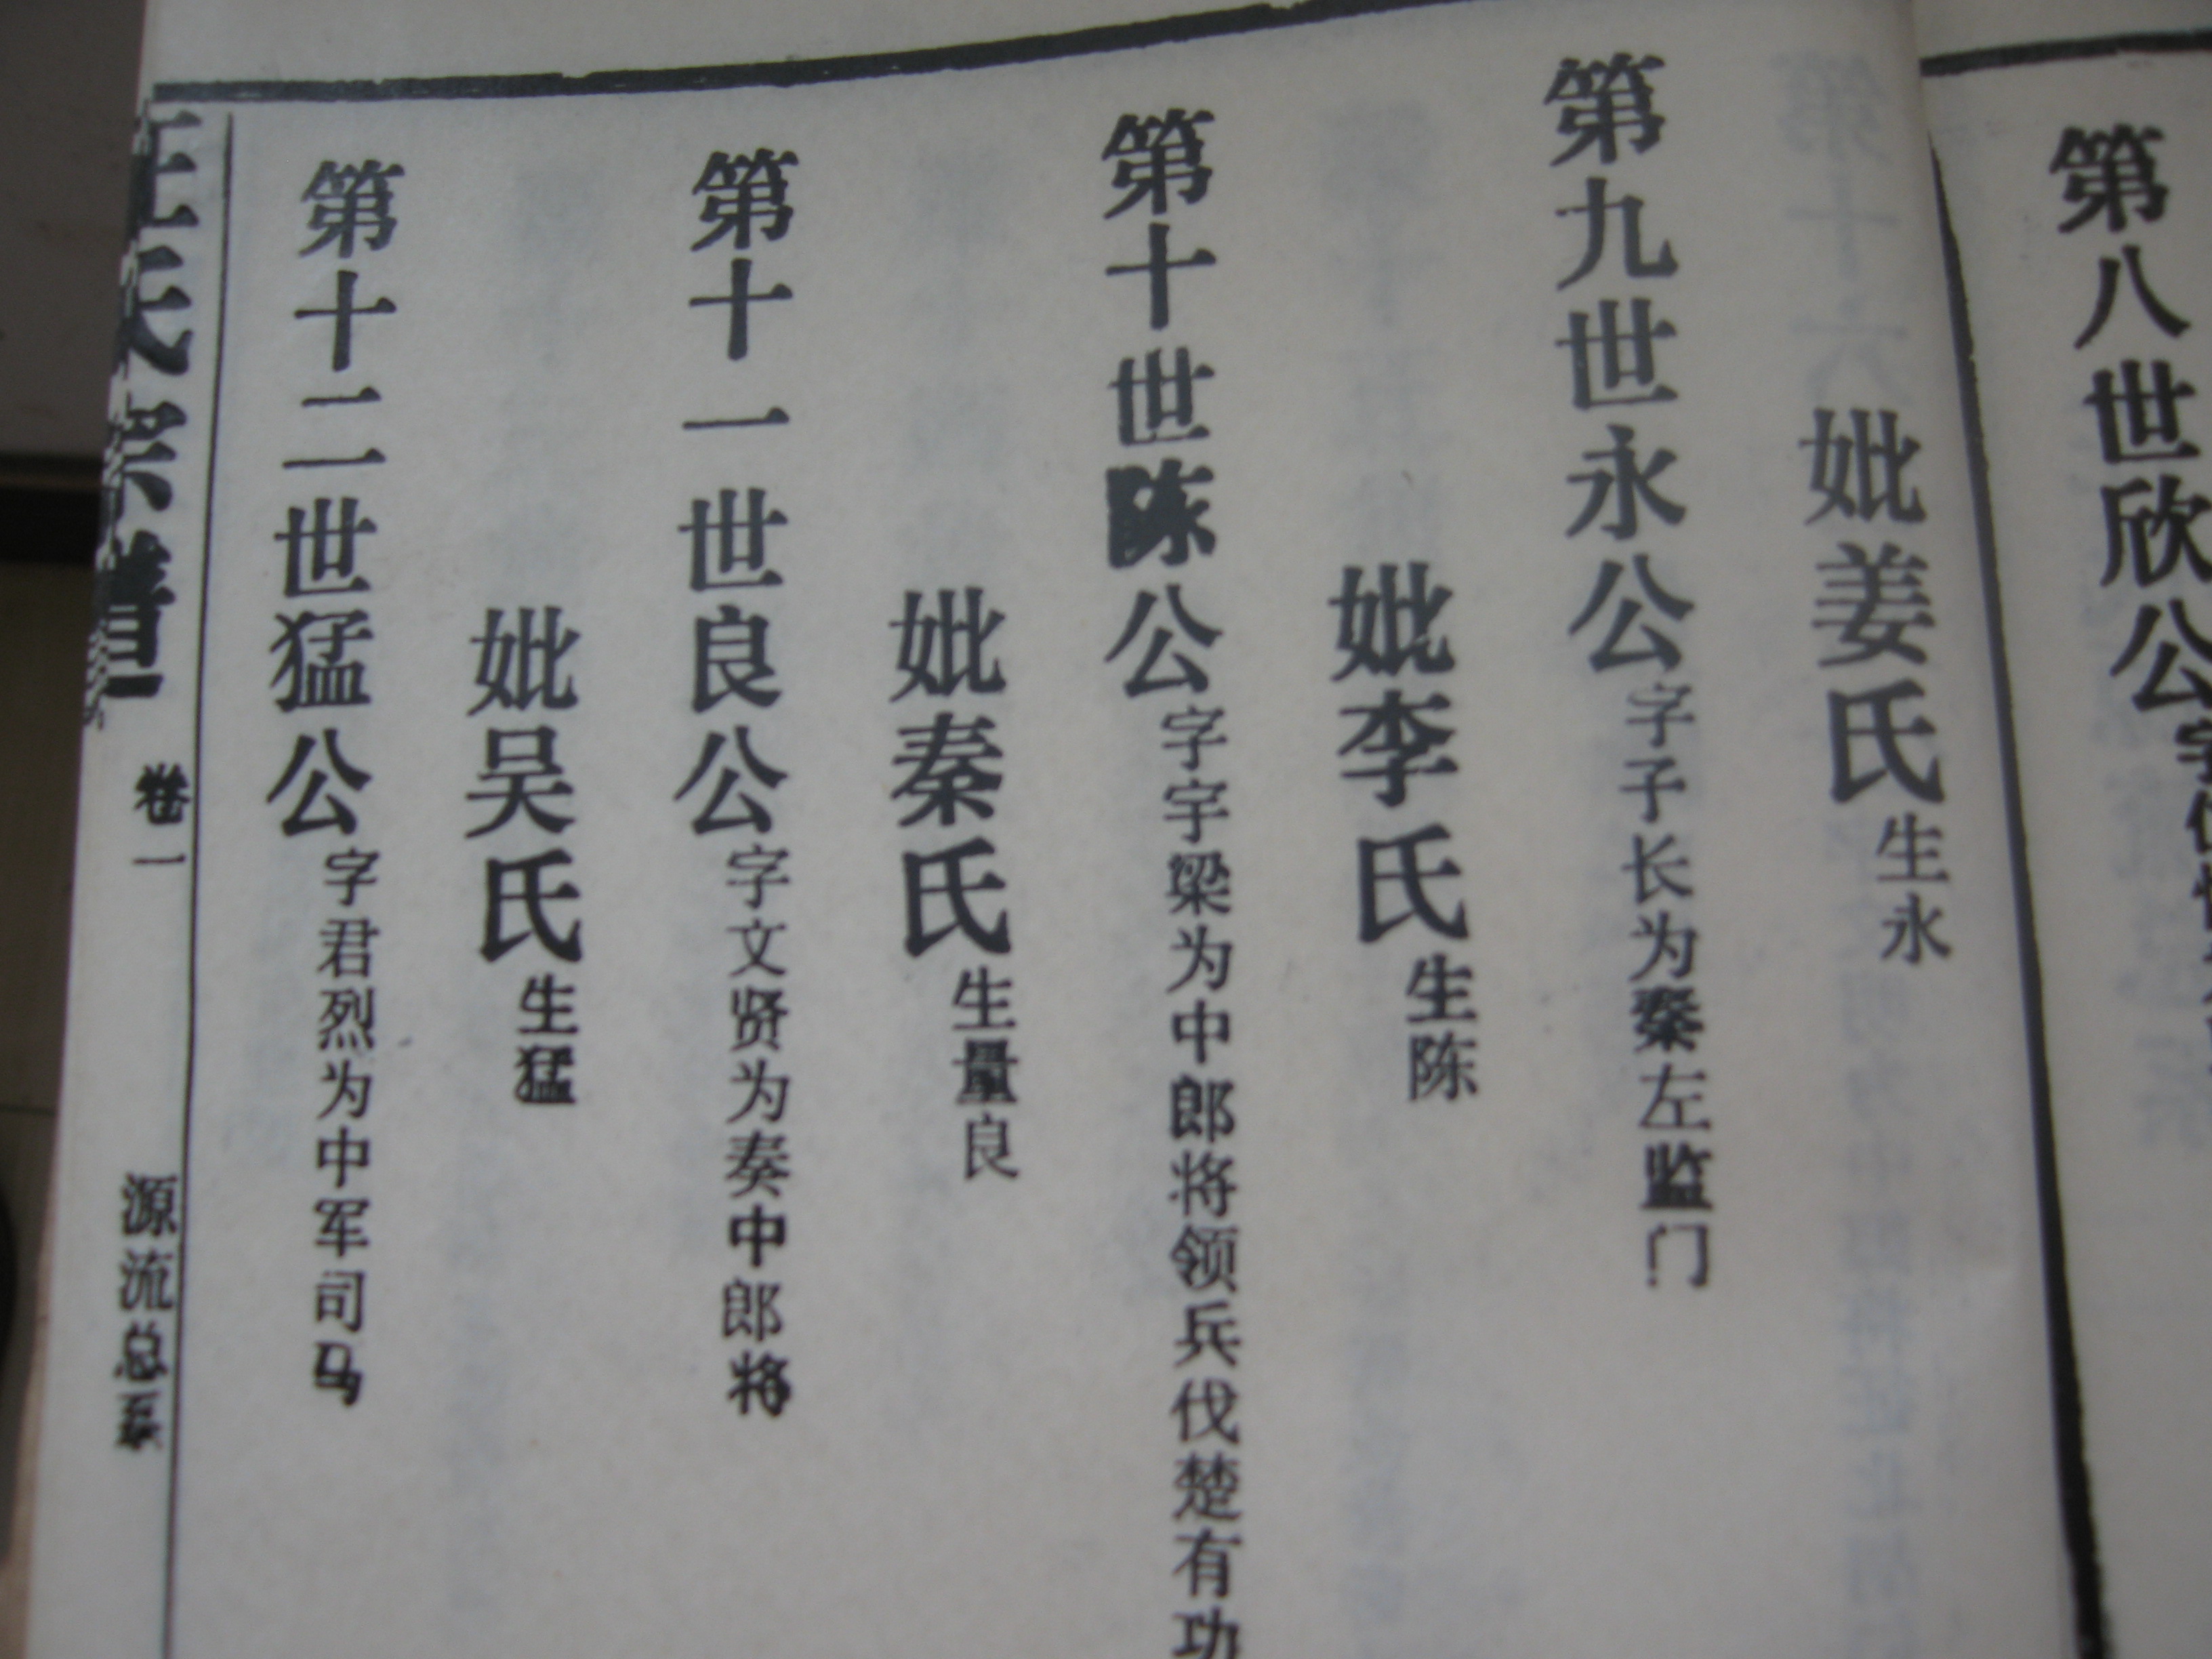 第八世欣公字
妣姜氏生永
第九世永公字子长为秦左监门
妣李氏生陈
第十世陈公字宇梁为中郎将领兵伐楚有功
妣秦氏生量良
第十一世良公字文贤为奏中郎将
妣吴氏生猛
第十二世猛公字君烈为中军司马
氏宗谱 卷一 源流总系